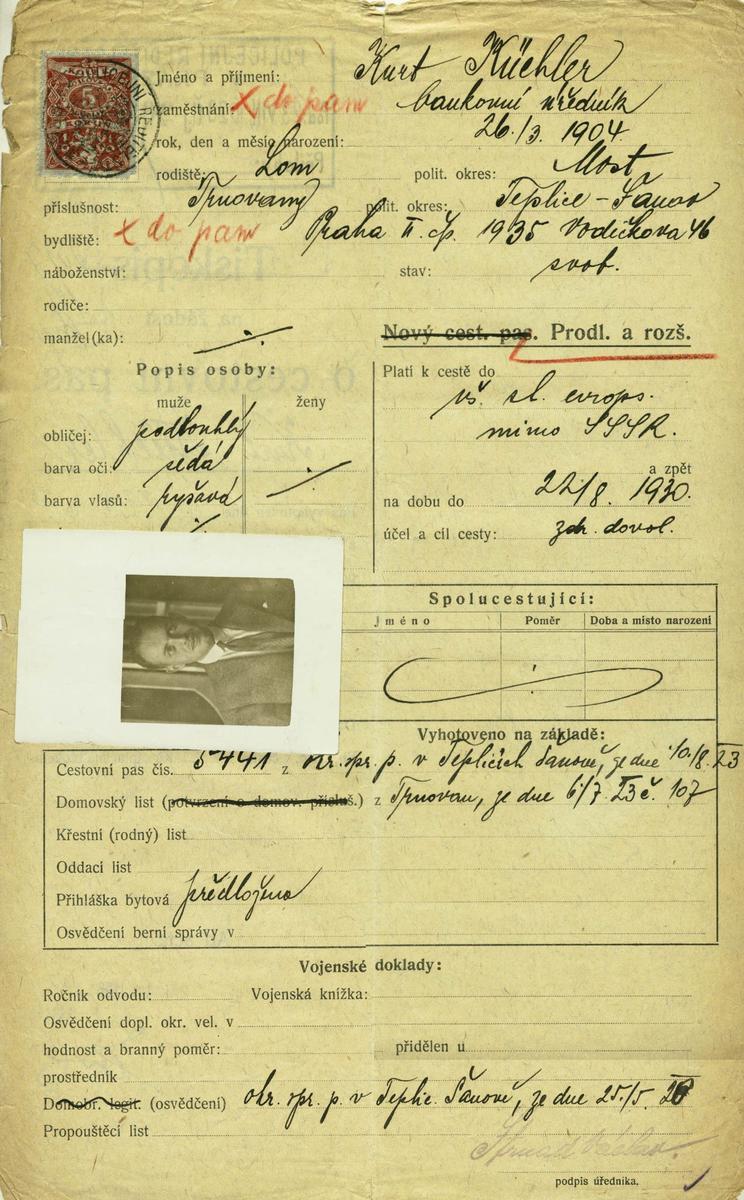 Jméno a příjmení: Kurt Küchler
zaměstnání: x do pam bankovní úředník
rok, den a měsíc narození: 26./3. 1904
rodiště: Lom polit. okres: Most
příslušnost: Trnovany polit. okres: Teplice-Šanov
bydliště: x do pam Praha II. čp. 1935 Vodičkova 46
náboženství: stav: svob.
rodiče:
manžel(ka):
Nový cest. pas. Prodl. a rozš.
Popis osoby:
muže ženy
obličej: podlouhlý
barva očí: šedá
barva vlasů: ryšavá
Platí k cestě do
vš. st. evrops.
mimo SSSR.
a zpět
na dobu do 22/8. 1930.
účel a cíl cesty: zdr. dovol.
Spolucestující:
Jméno Poměr Doba a místo narození
Vyhotoveno na základě:
Cestovní pas čís. 5441 z okr. spr. p. v Teplicích Šanově, ze dne 10./8. 23
Domovský list (potvrzení o domov. přísluš.) z Trnovan, ze dne 6/7. 23 č. 107
Křestní (rodný) list
Oddací list
Přihláška bytová předložena
Osvědčení berní správy v
Vojenské doklady:
Ročník odvodu: Vojenská knížka:
Osvědčení dopl. okr. vel. v
hodnost a branný poměr: přidělen u
prostředník
Domobr. legit. (osvědčení) okr. spr. p. v Teplic. Šanově, ze dne 25./5.
Propouštěcí list
podpis úředníka.